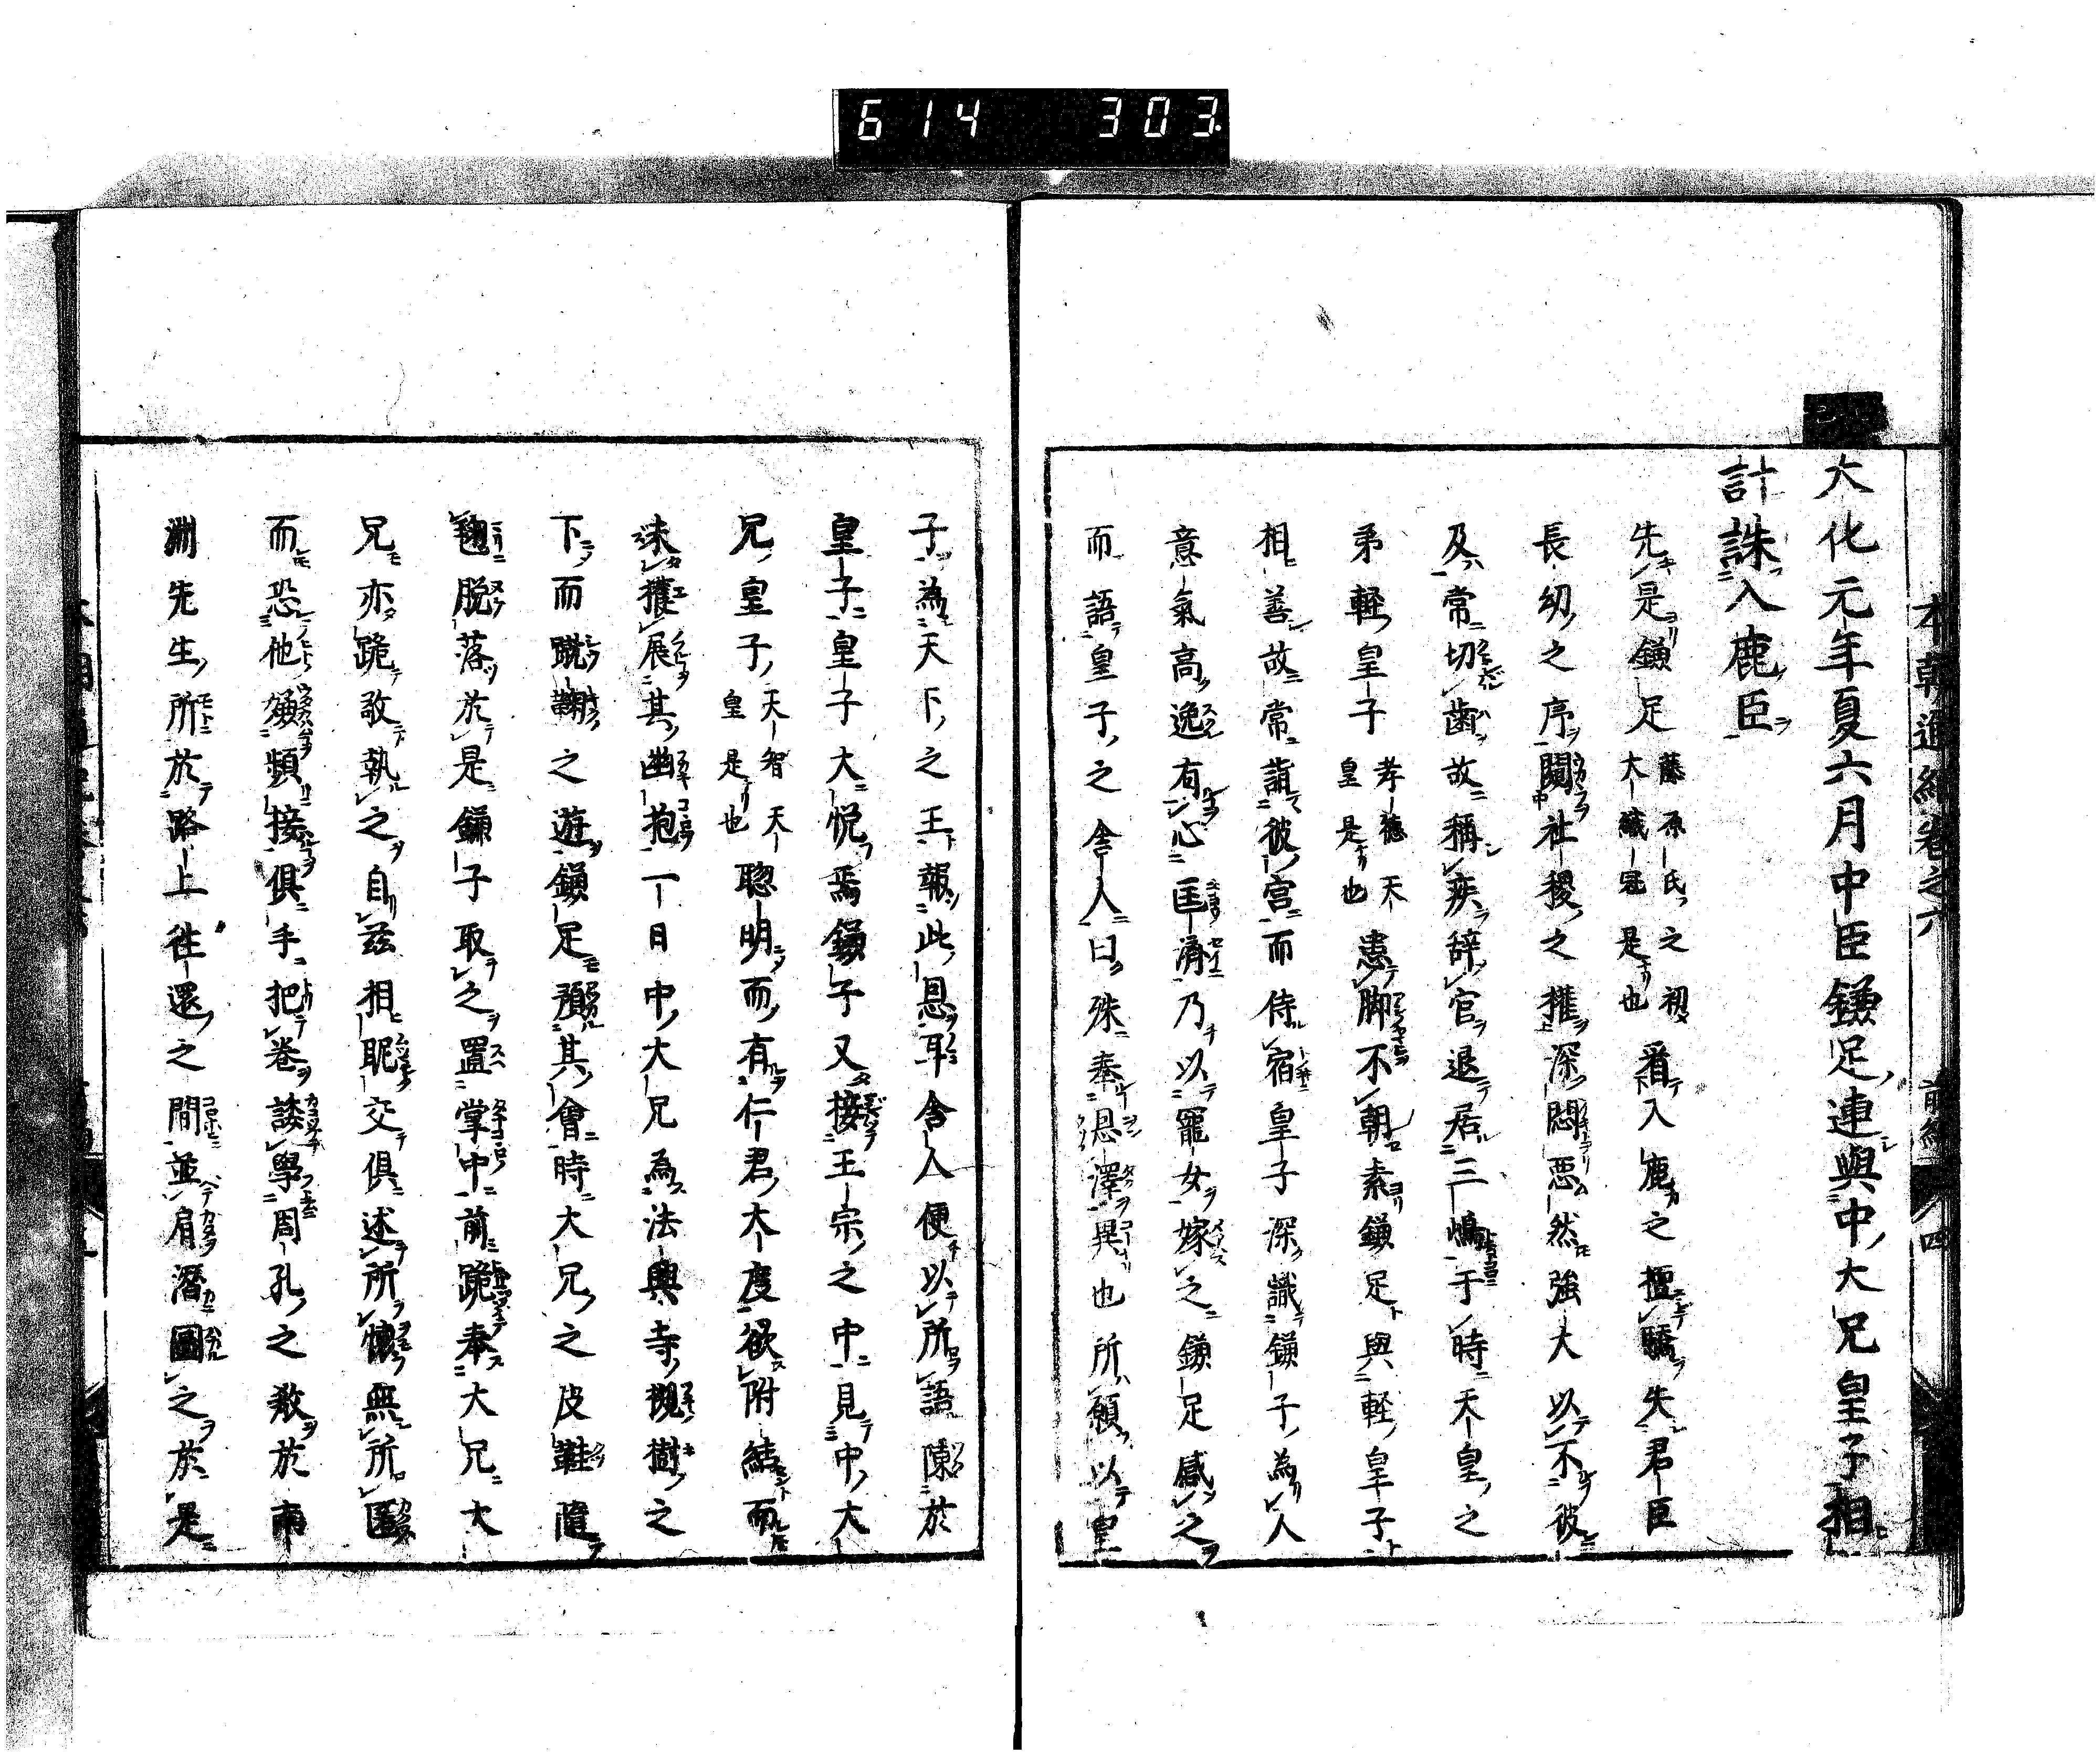 614 303
本朝通紀卷之六 前編 四
大化元年夏六月中臣鎌足連與中大兄皇子相
計誅入鹿臣
先是鎌足藤原氏之祖大織冠是也看入鹿之擅驕失君臣
長幼之序闚社稷之權深悶惡然強大以不彼
及常切齒故稱疾辞官退居三嶋于時天皇之
弟軽皇子孝德天皇是也患脚不朝素鎌足與軽皇子
相善故常詣彼宮而侍宿皇子深識鎌子為人
意氣高逸有心匡濟乃以寵女嫁之鎌足感之
而語皇子之舎人曰殊奉恩澤異也所願以皇
子為天下之王報此恩耳舎人便以所語陳於
皇子皇子大悦焉鎌子又接王宗之中見中大
兄皇子天智天皇是也聡明而有仁君大度欲附結而
未獲展其幽抱一日中大兄為法興寺槻樹之
下而蹴鞠之遊鎌足預其會時大兄之皮鞋隨
毱脱落於是鎌子取之置掌中前跪奉大兄大
兄亦跪敬執之自茲相昵交俱述所懷無所匿
而恐他嫌頻接俱手把巻談學周孔之教於南
淵先生所於路上往還之間並肩潛圖之於是